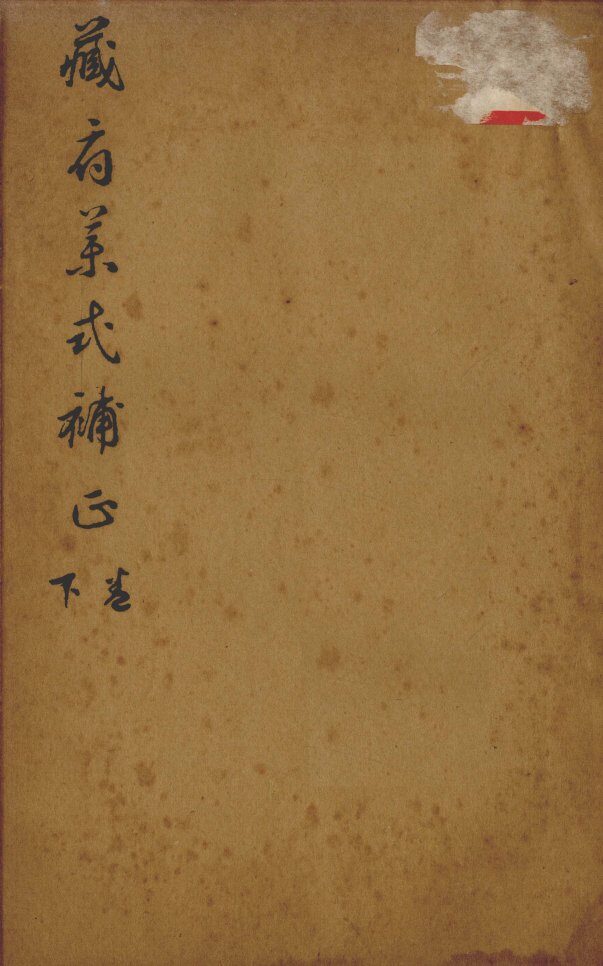 藏府藥式補正
卷下